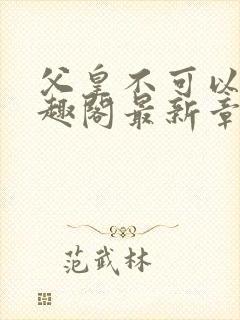 父皇不可以
趣阁最新章
范武林